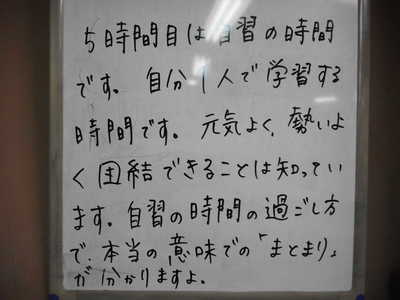 5時間目は自習の時間
です。自分1人で学習する
時間です。元気よく、勢いよ
く団結できることは知ってい
ます。自習の時間の過ごし方
で、本当の意味での「まとまり」
が分かりますよ。